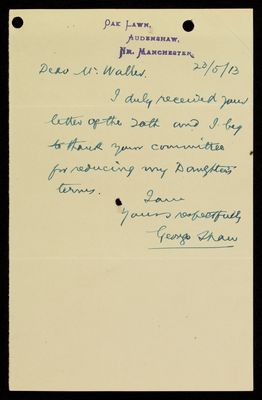 OAK LAWN,
AUDENSHAW,
NR. MANCHESTER.
23/5/13
Dear Mr Waller.
I duly received your
letter of the 20th and I beg
to thank your committee
for reducing my Daughters
terms.
I am
Yours respectfully
George Shaw